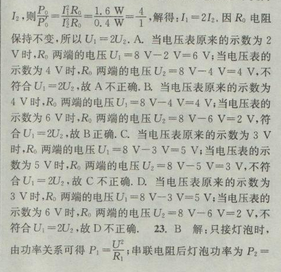 I₂,则P₀/P₀′=I₁²R₀/I₂²R₀=1.6 W/0.4 W=4/1,解得:I₁=2I₂,因 R₀ 电阻
保持不变,所以 U₁=2U₂。A. 当电压表原来的示数为 2
V时,R₀ 两端的电压 U₁=8 V-2 V=6 V;当电压表的
示数为 4 V时,R₀ 两端的电压 U₂=8 V-4 V=4 V,不
符合 U₁=2U₂,故 A 不正确. B. 当电压表原来的示数为
4 V时,R₀ 两端的电压 U₁=8 V-4 V=4 V;当电压表的
示数为 6 V时,R₀ 两端的电压 U₂=8 V-6 V=2 V,符
合 U₁=2U₂,故 B 正确. C. 当电压表原来的示数为 3 V
时,R₀ 两端的电压 U₁=8 V-3 V=5 V;当电压表的示
数为 5 V时,R₀ 两端的电压 U₂=8 V-5 V=3 V,不符
合 U₁=2U₂,故 C 不正确. D. 当电压表原来的示数为
3 V时,R₀ 两端的电压 U₁=8 V-3 V=5 V;当电压表的
示数为 6 V时,R₀ 两端的电压 U₂=8 V-6 V=2 V,不
符合 U₁=2U₂,故 D 不正确. 23. B 解:只接灯泡时,
由功率关系可得 P₁=U²/R₁;串联电阻后灯泡功率为 P₂=